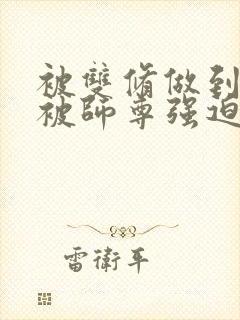 被雙脩做到
被師尊强迫
雷衛平